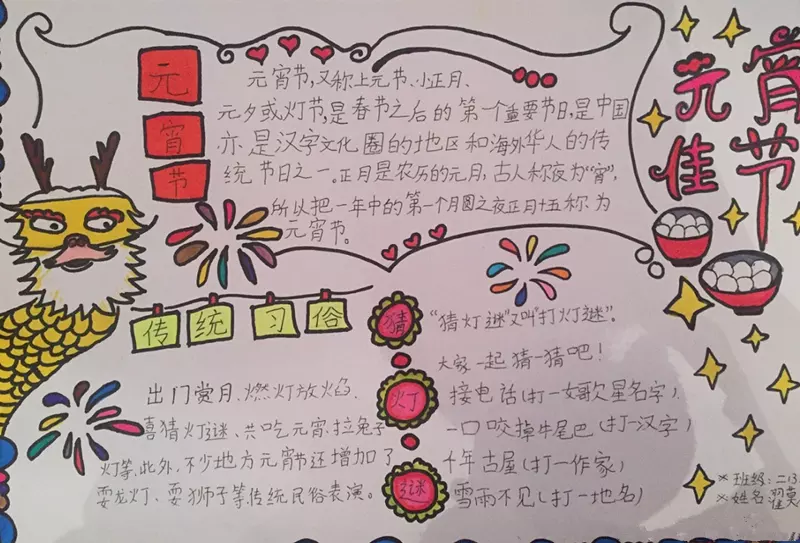 元宵节
元宵节,又称上元节、小正月、
元夕或灯节,是春节之后的第一个重要节日,是中国
亦是汉字文化圈的地区和海外华人的传
统节日之一。正月是农历的元月,古人称夜为“宵”,
所以把一年中的第一个月圆之夜正月十五称为
元宵节。
元宵
佳节
传统习俗
出门赏月、燃灯放焰、
喜猜灯谜、共吃元宵、拉兔子
灯等、此外,不少地方元宵节还增加了
耍龙灯、耍狮子等传统民俗表演。
猜灯谜
“猜灯谜”又叫“打灯谜”。
大家一起猜一猜吧!
接电话(打一女歌星名字)
一口咬掉牛尾巴(打一汉字)
千年古屋(打一作家)
雪雨不见(打一地名)
※班级:二13
※姓名:翟莫